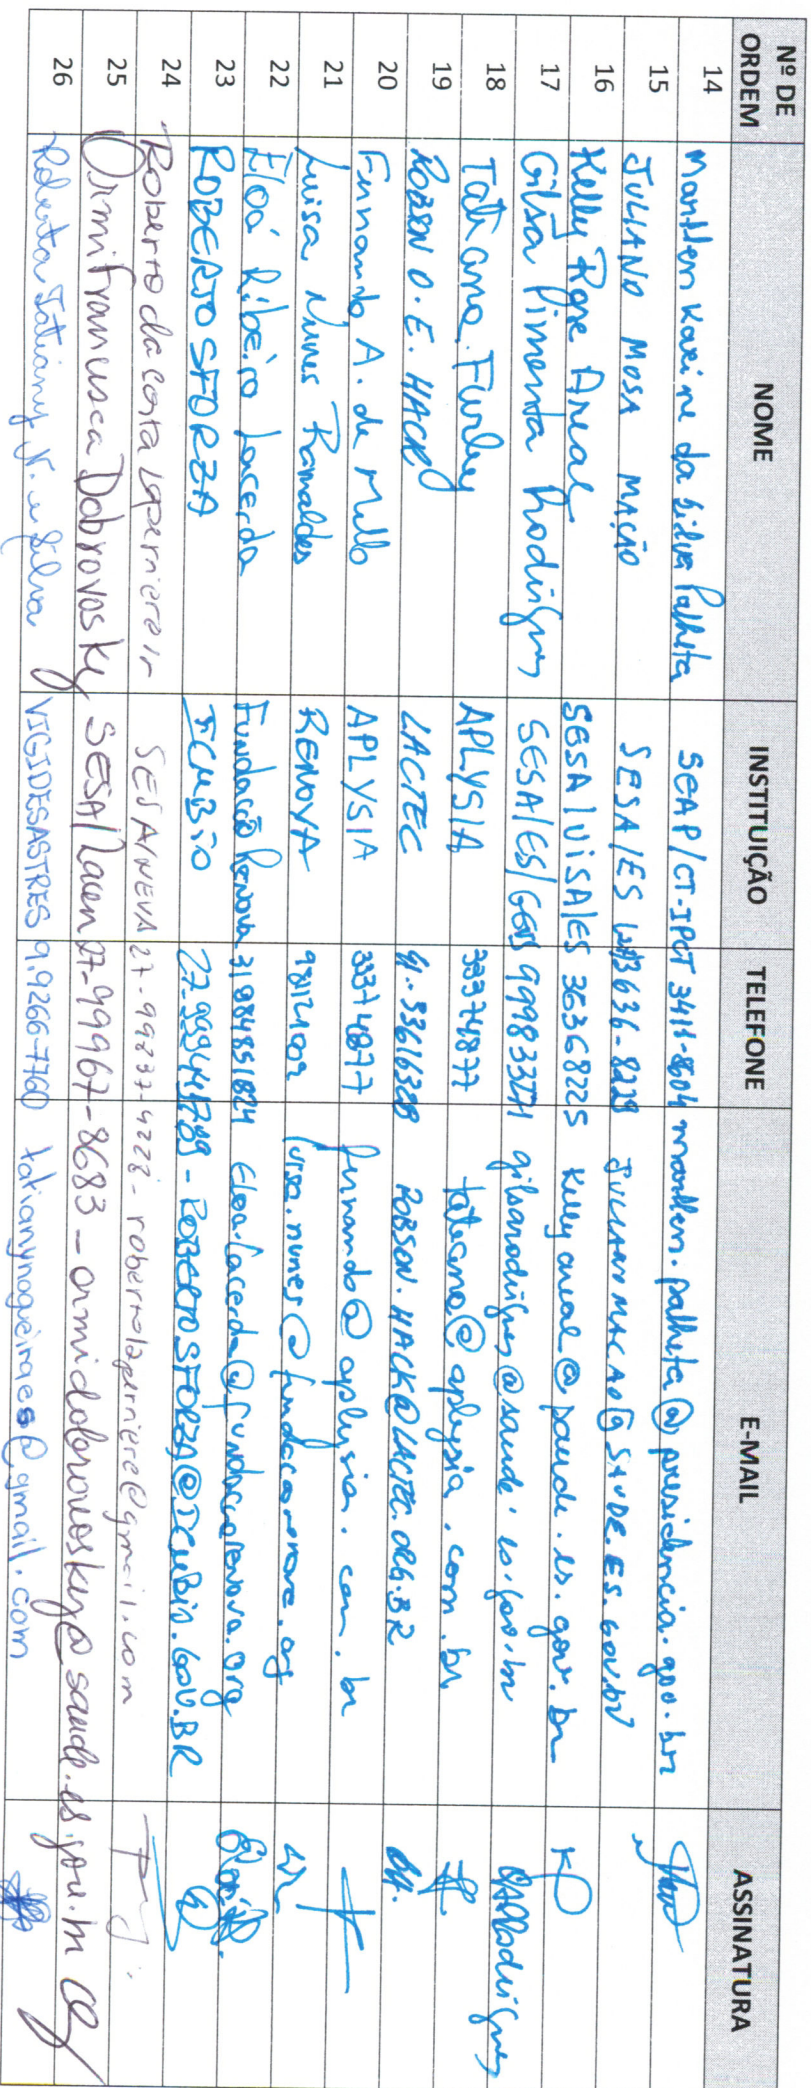 Nº DE ORDEM NOME INSTITUIÇÃO TELEFONE E-MAIL ASSINATURA
14 Marillen Karine da Silva Palheta SEAP/CT-IPCT 3411-8604 palheta@presidencia.gov.br
15 JULIANO MOSA MAÇÃO SESA/ES 3636-8229 JULIANOMACAO@SAUDE.ES.GOV.BR
16 Kelly Rose Areal SESA/VISA/ES 36368225 Kelly areal@saude.es.gov.br
17 Gilsa Pimenta Rodrigues SESA/ES/GEVS gilsarodrigues@saude.es.gov.br
18 Tatiana Furley APLYSIA 33374877 tatiana@aplysia.com.br
19 ROBSON O.E. HACK LACTEC 41-33616320 ROBSON.HACK@LACTEC.ORG.BR
20 Fernando A. de Mello APLYSIA 33374877 fernando@aplysia.com.br
21 Luisa Nunes Ramaldes RENOVA luisa.nunes@fundacaorenova.org
22 Eloá Ribeiro Lacerda Fundação Renova 31984851824 eloa.lacerda@fundacaorenova.org
23 ROBERTO SFORZA ICMBIO ROBERTO.SFORZA@ICMBIO.GOV.BR
24 Roberto da Costa Laperriere Jr SESA/NEVA 27-99237-4228 - robertolaperriere@gmail.com
25 Ormi Francisca Dobrovosky SESA/Lacen 27-99967-8683 - ormidobrovosky@saude.es.gov.br
26 Roberta Tatiany N. e Silva VIGIDESASTRES 9.9266-7760 tatianynogueiraes@gmail.com